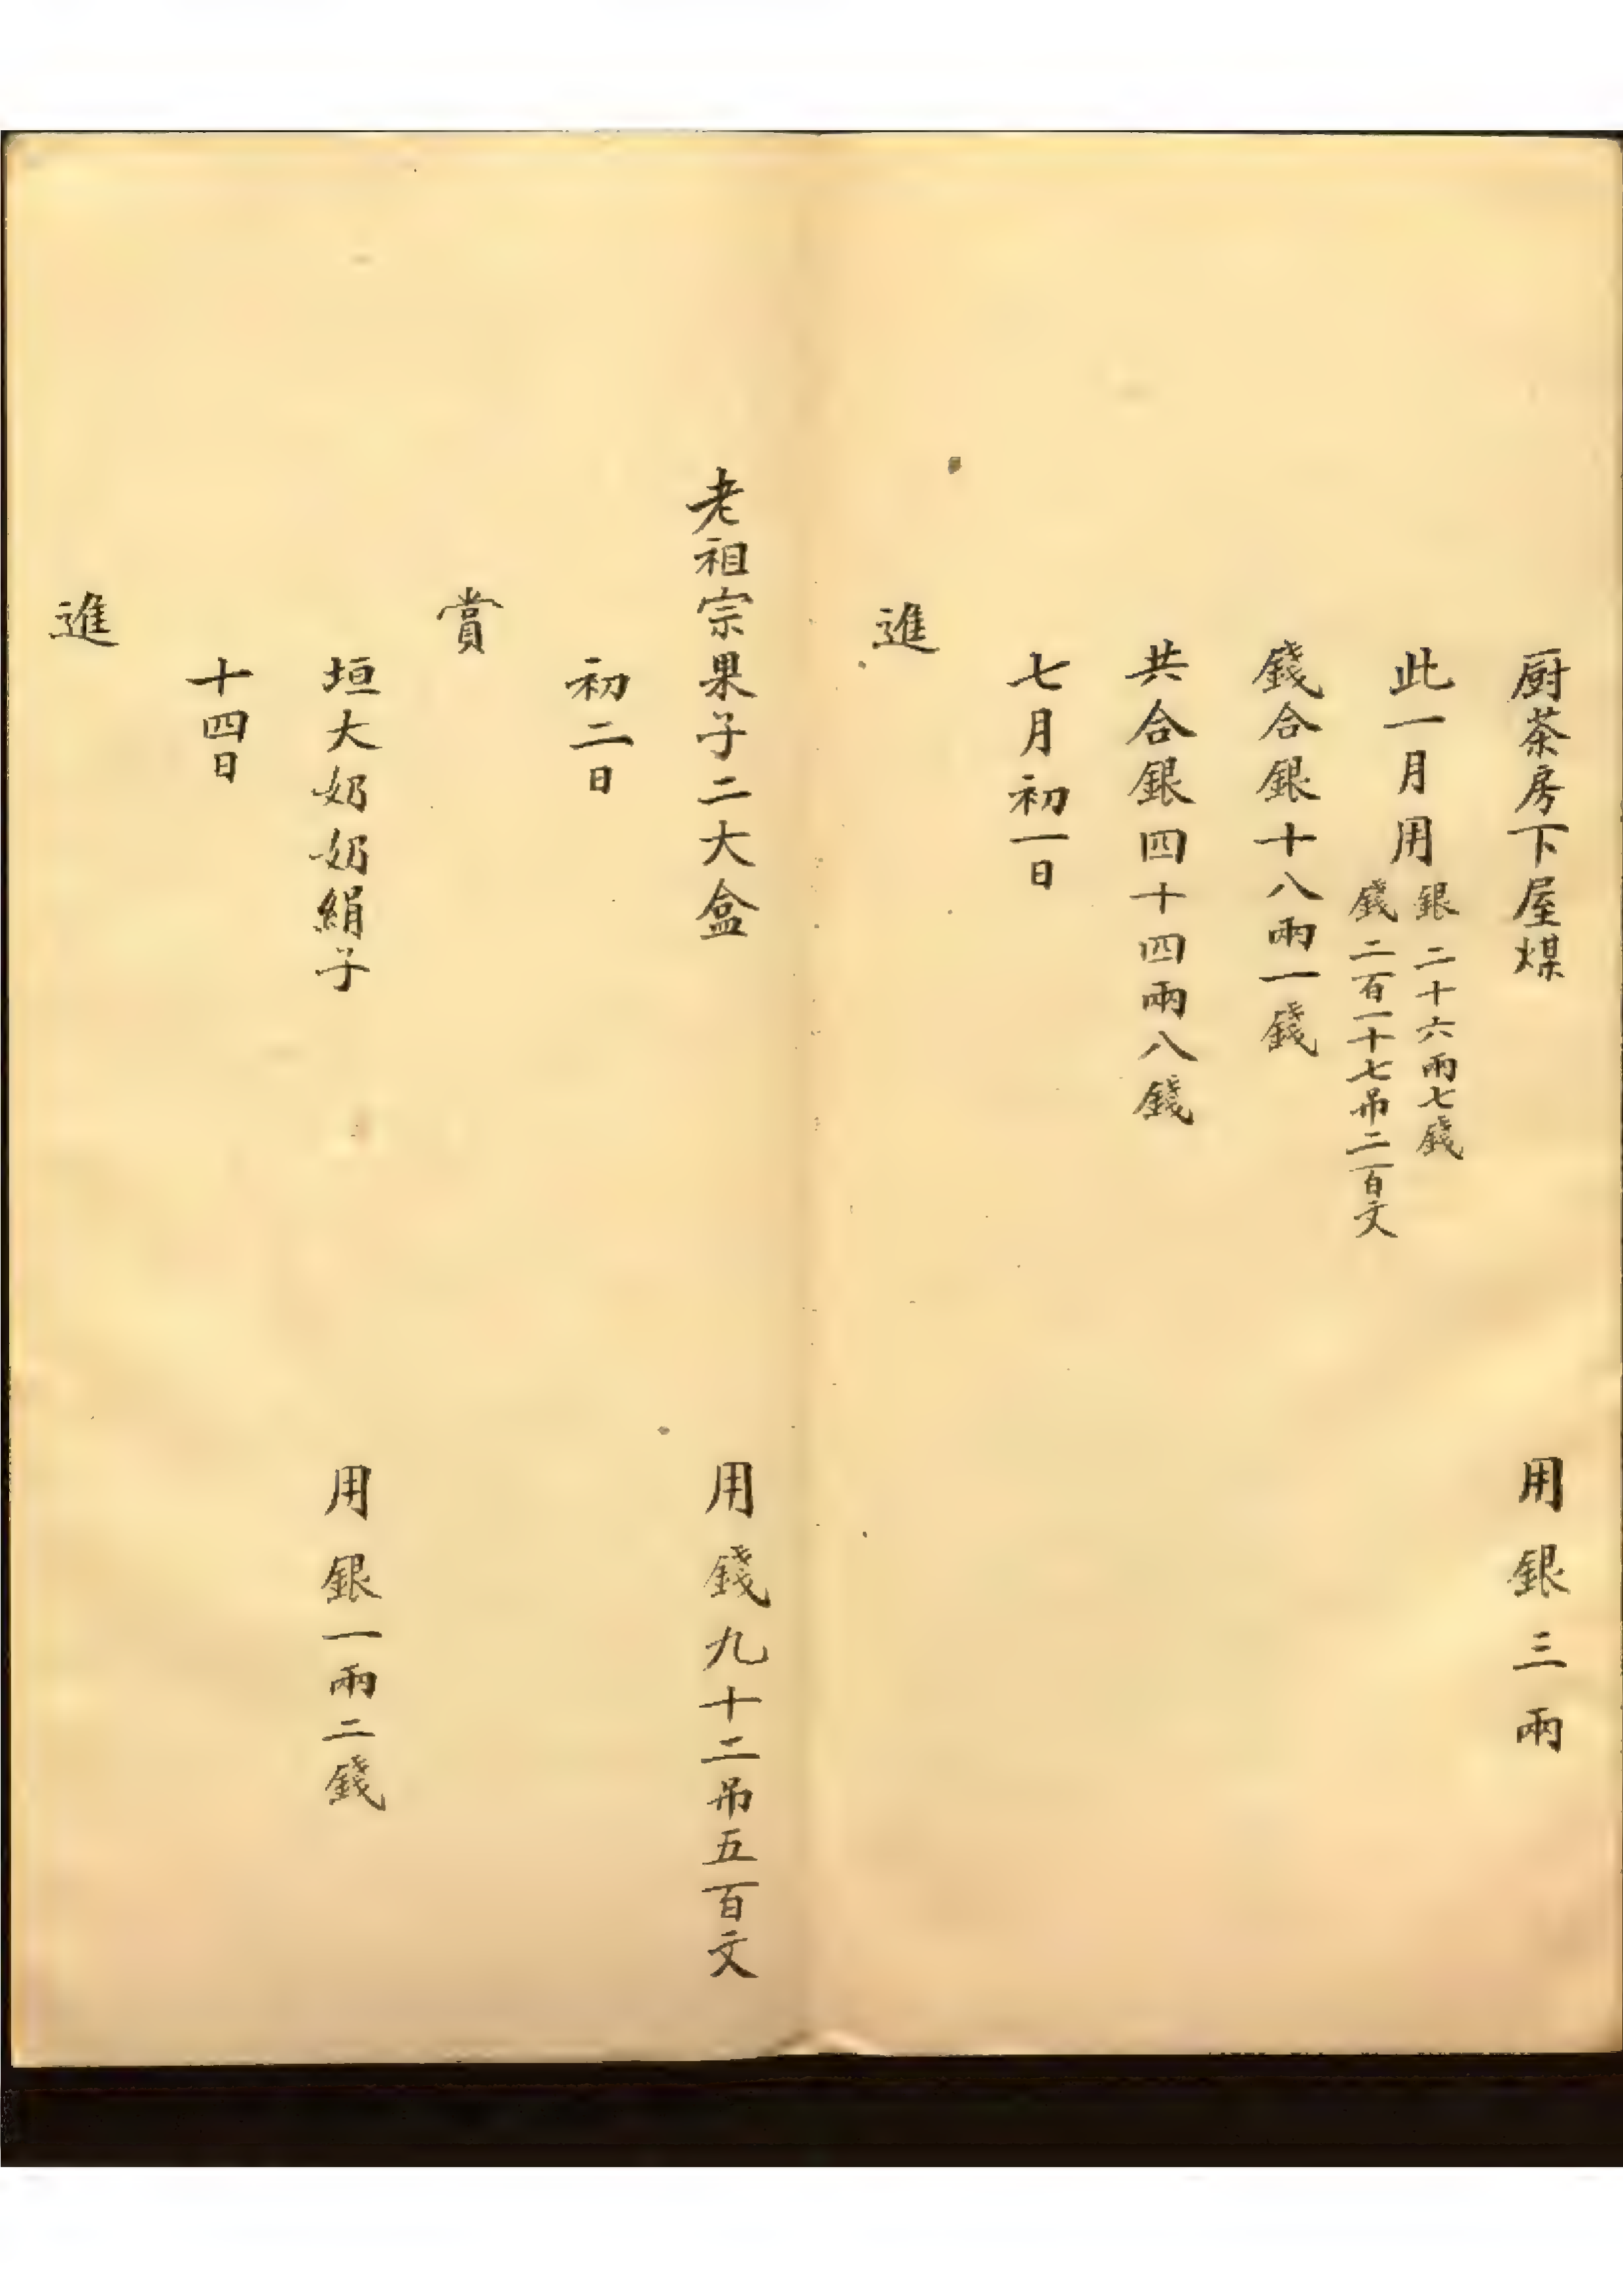 厨茶房下屋煤 用銀三兩
此一月用銀二十六兩七錢
錢二百一十七吊二百文
錢合銀十八兩一錢
共合銀四十四兩八錢
七月初一日
進
老祖宗果子二大盒 用錢九十二吊五百文
初二日
賞
垣大奶奶絹子 用銀一兩二錢
十四日
進